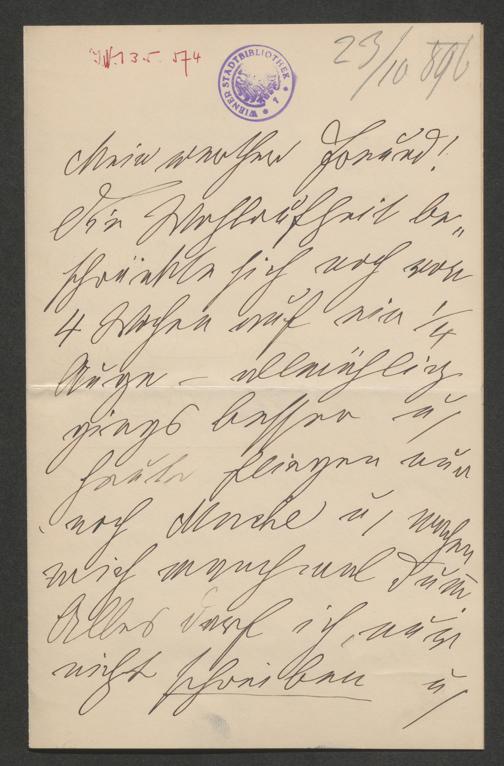 I.N. 135.574
WIENER STADTBIBLIOTHEK * 7 *
23/10 896
Mein werther Freund!
Die Wohlaufheit be„
schränkte sich noch vor
4 Wochen auf ein 1/4
Auge – allmählig
gings besser u,
heute fliegen nur
noch u, machen
mich manchmal dum̄
Alles darf ich, nur
nicht schreiben u,